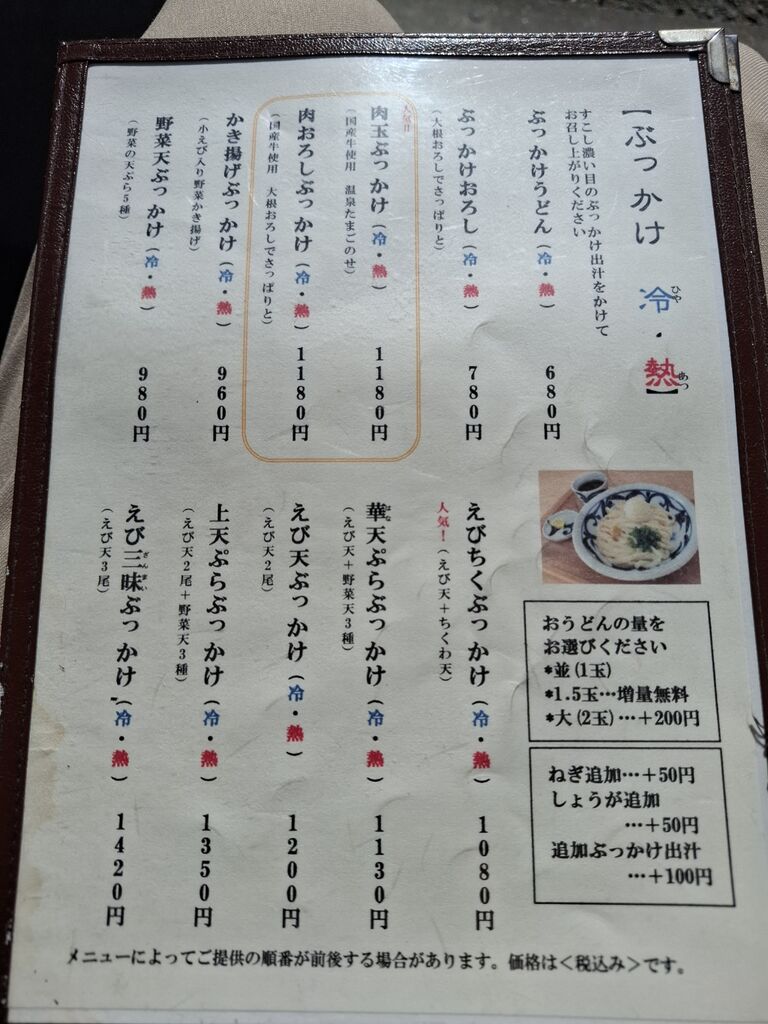 【ぶっかけ 冷・熱】
ひや
あつ
すこし濃い目のぶっかけ出汁をかけて
お召し上がりください
ぶっかけうどん（冷・熱） 680円
ぶっかけおろし（冷・熱） 780円
（大根おろしでさっぱりと）
人気!!
肉玉ぶっかけ（冷・熱） 1180円
（国産牛使用 温泉たまごのせ）
肉おろしぶっかけ（冷・熱） 1180円
（国産牛使用 大根おろしでさっぱりと）
かき揚げぶっかけ（冷・熱） 960円
（小えび入り野菜かき揚げ）
野菜天ぶっかけ（冷・熱） 980円
（野菜の天ぷら5種）
えびちくぶっかけ（冷・熱） 1080円
人気！（えび天＋ちくわ天）
はな
華天ぷらぶっかけ（冷・熱） 1130円
（えび天＋野菜天3種）
えび天ぶっかけ（冷・熱） 1200円
（えび天2尾）
上天ぷらぶっかけ（冷・熱） 1350円
（えび天2尾＋野菜天3種）
ざんまい
えび三昧ぶっかけ（冷・熱） 1420円
（えび天3尾）
おうどんの量を
お選びください
*並(1玉)
*1.5玉…増量無料
*大(2玉)…＋200円
ねぎ追加…＋50円
しょうが追加
…＋50円
追加ぶっかけ出汁
…＋100円
メニューによってご提供の順番が前後する場合があります。価格は＜税込み＞です。